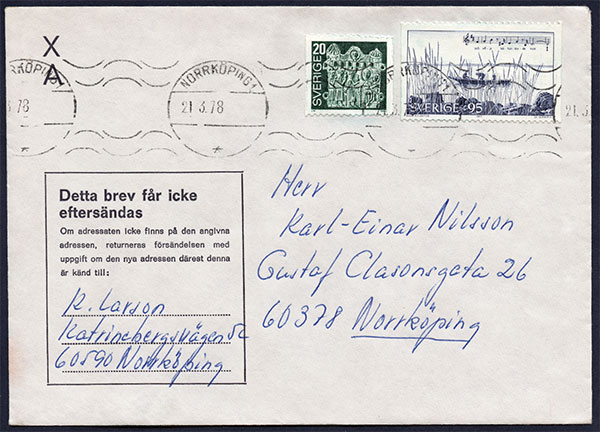 X
A
NORRKÖPING 1
3.78
NORRKÖPING 1
21.3.78
20
SVERIGE
SVERIGE 95
NORRKÖPING 1
21.3
Detta brev får icke
eftersändas
Om adressaten icke finns på den angivna
adressen, returneras försändelsen med
uppgift om den nya adressen därest denna
är känd till:
K. Larson
Katrinebergsvägen 52
60590 Norrköping
Herr
Karl-Einar Nilsson
Gustaf Clasonsgata 26
60378 Norrköping